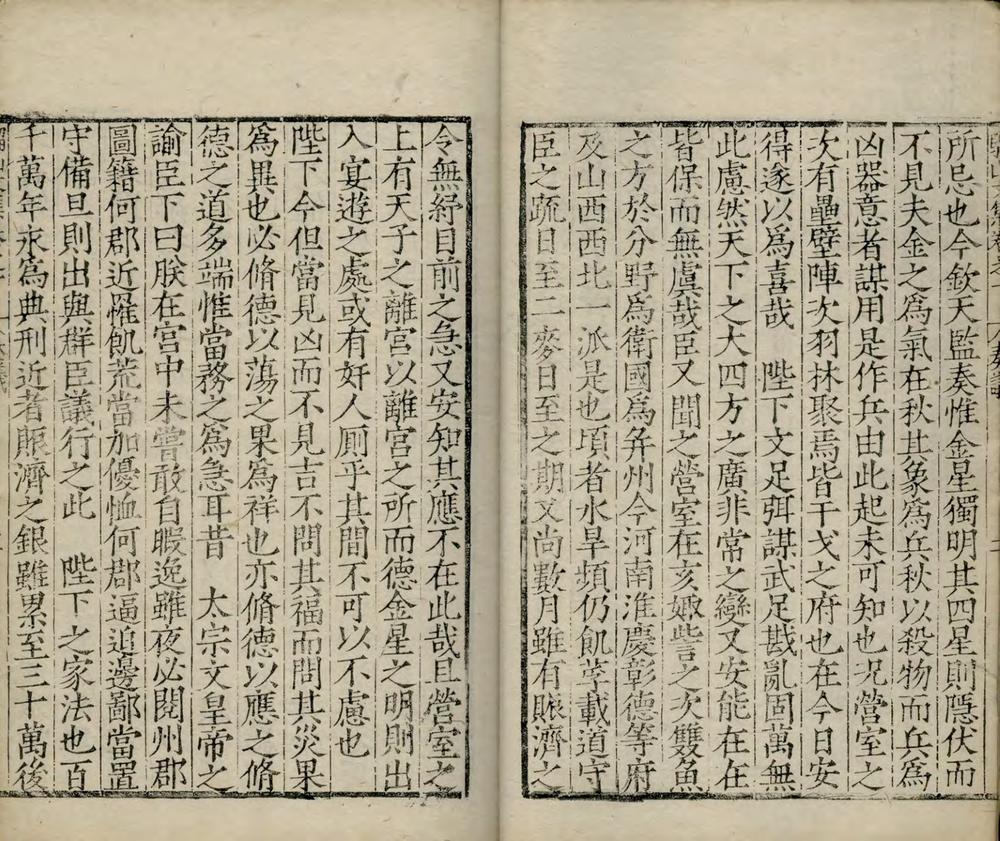 所忌也今欽天監奏惟金星獨明其四星則隱伏而
不見夫金之爲氣在秋其象爲兵秋以殺物而兵爲
凶器意者謀用是作兵由此起未可知也況營室之
次有壘壁陣次羽林聚焉皆干戈之府也在今日安
得遂以爲喜哉 陛下文足弭謀武足戡亂固萬無
此慮然天下之大四方之廣非常之變又安能在在
皆保而無虞哉臣又聞之營室在亥娵訾之次雙魚
之方於分野爲衛國爲并州今河南淮慶彰德等府
及山西西北一派是也頃者水旱頻仍飢莩載道守
臣之疏日至二麥日至之期又尚數月雖有賑濟之
令無紓目前之急又安知其應不在此哉且營室之
上有天子之離宮以離宮之所而德金星之明則出
入宴遊之處或有奸人厠乎其間不可以不慮也
陛下今但當見凶而不見吉不問其福而問其災果
爲異也必脩德以蕩之果爲祥也亦脩德以應之脩
德之道多端惟當務之爲急耳昔 太宗文皇帝之
諭臣下曰朕在宮中未嘗敢自暇逸雖夜必閱州郡
圖籍何郡近罹飢荒當加優恤何郡逼迫邊鄙當置
守備旦則出與群臣議行之此 陛下之家法也百
千萬年永爲典刑近者賑濟之銀雖累至三十萬後